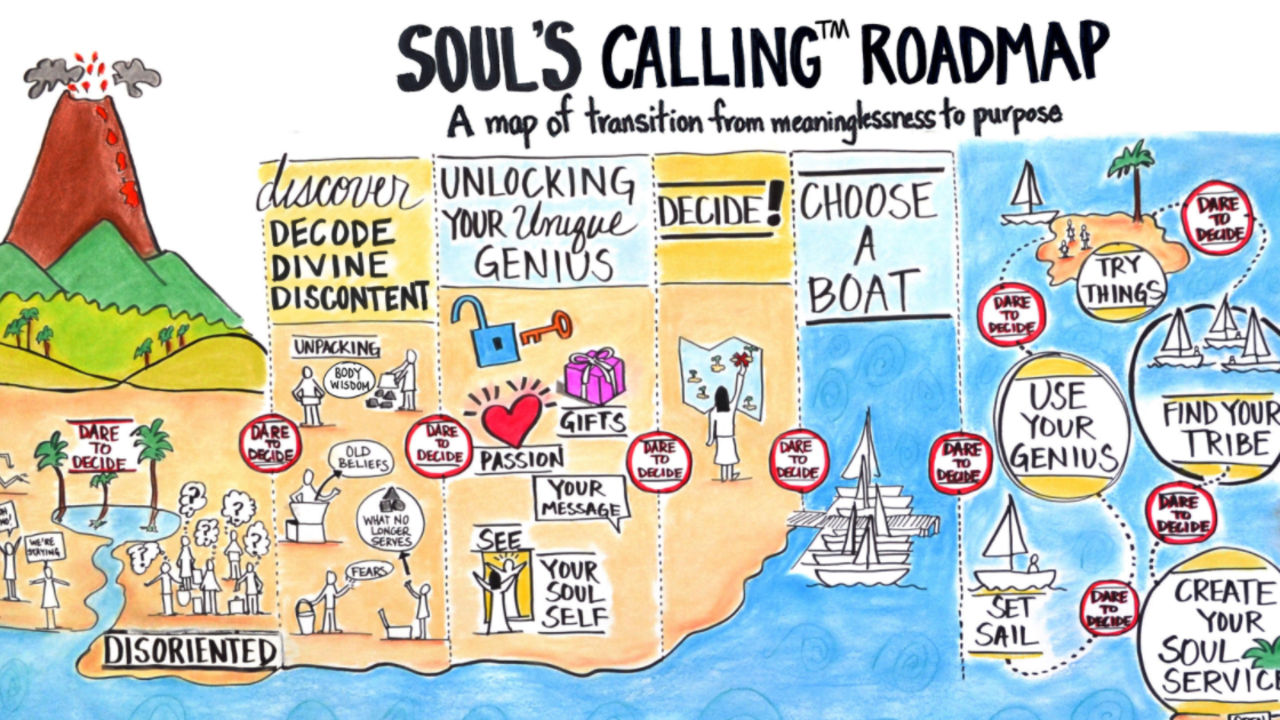 SOUL'S CALLING™ ROADMAP
A map of transition from meaninglessness to purpose
discover
DECODE
DIVINE
DISCONTENT
UNLOCKING
YOUR Unique
GENIUS
DECIDE!
CHOOSE
A
BOAT
DARE
TO
DECIDE
WE'RE
STAYING
DISORIENTED
DARE
TO
DECIDE
UNPACKING
BODY
WISDOM
OLD
BELIEFS
WHAT NO
LONGER
SERVES
FEARS
DARE
TO
DECIDE
GIFTS
PASSION
YOUR
MESSAGE
SEE
YOUR
SOUL
SELF
DARE
TO
DECIDE
DARE
TO
DECIDE
DARE
TO
DECIDE
SET
SAIL
DARE
TO
DECIDE
USE
YOUR
GENIUS
DARE
TO
DECIDE
TRY
THINGS
DARE
TO
DECIDE
FIND YOUR
TRIBE
DARE
TO
DECIDE
CREATE
YOUR
SOUL
SERVICE